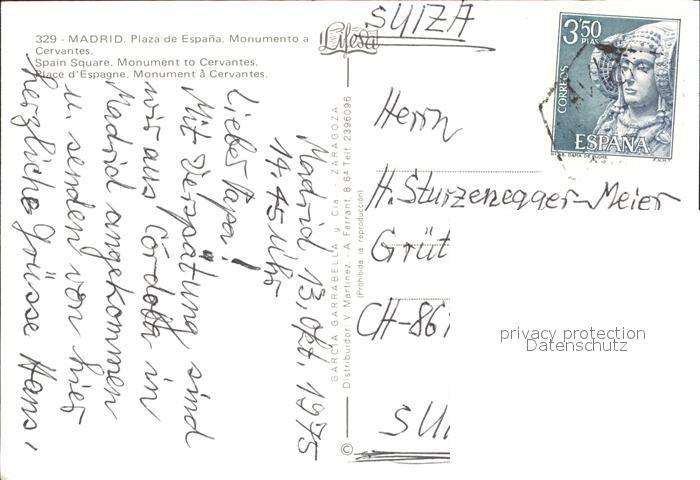 329 - MADRID. Plaza de España. Monumento a
Cervantes.
Spain Square. Monument to Cervantes.
Place d'Espagne. Monument à Cervantes.
Lifesa
SUIZA
3'50
PTAS
CORREOS
ESPAÑA
Madrid 13. Okt. 1975
14.45 Uhr
Lieber Papa!
Mit Verspätung sind
wir aus Cordoba in
Madrid angekommen
u. senden von hier
herzliche Grüsse Hans,
GARCIA GARRABELLA y Cia. - ZARAGOZA
Distribuidor V. Martinez - A. Ferrant, 8, 6ª Telf. 2396096
(Prohibida la reproducción)
©
Herrn
H. Sturzenegger-Meier
Grüt
CH-861
SUI
privacy protection
Datenschutz